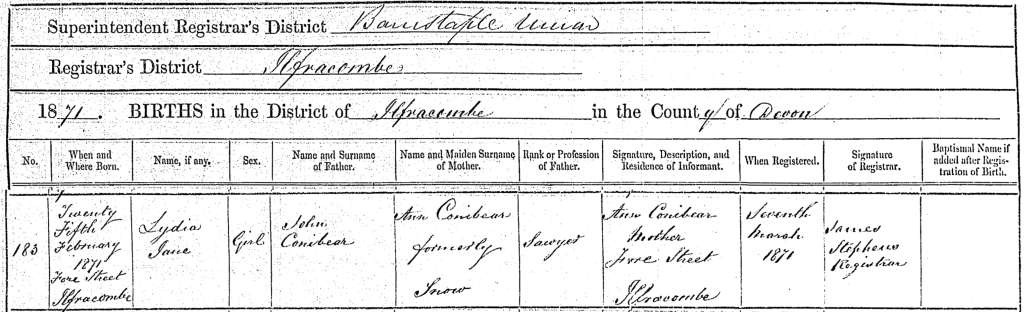 Superintendent Registrar's District Barnstaple Union
Registrar's District Ilfracombe
1871. BIRTHS in the District of Ilfracombe in the County of Devon
No.
When and
Where Born.
Name, if any.
Sex.
Name and Surname
of Father.
Name and Maiden Surname
of Mother.
Rank or Profession
of Father.
Signature, Description, and
Residence of Informant.
When Registered.
Signature
of Registrar.
Baptismal Name if
added after Regis-
tration of Birth.
183
Twenty
Fifth
February
1871
Fore Street
Ilfracombe
Lydia
Jane
Girl
John
Conibear
Ann Conibear
formerly
Snow
Sawyer
Ann Conibear
Mother
Fore Street
Ilfracombe
Seventh
March
1871
James
Stephens
Registrar